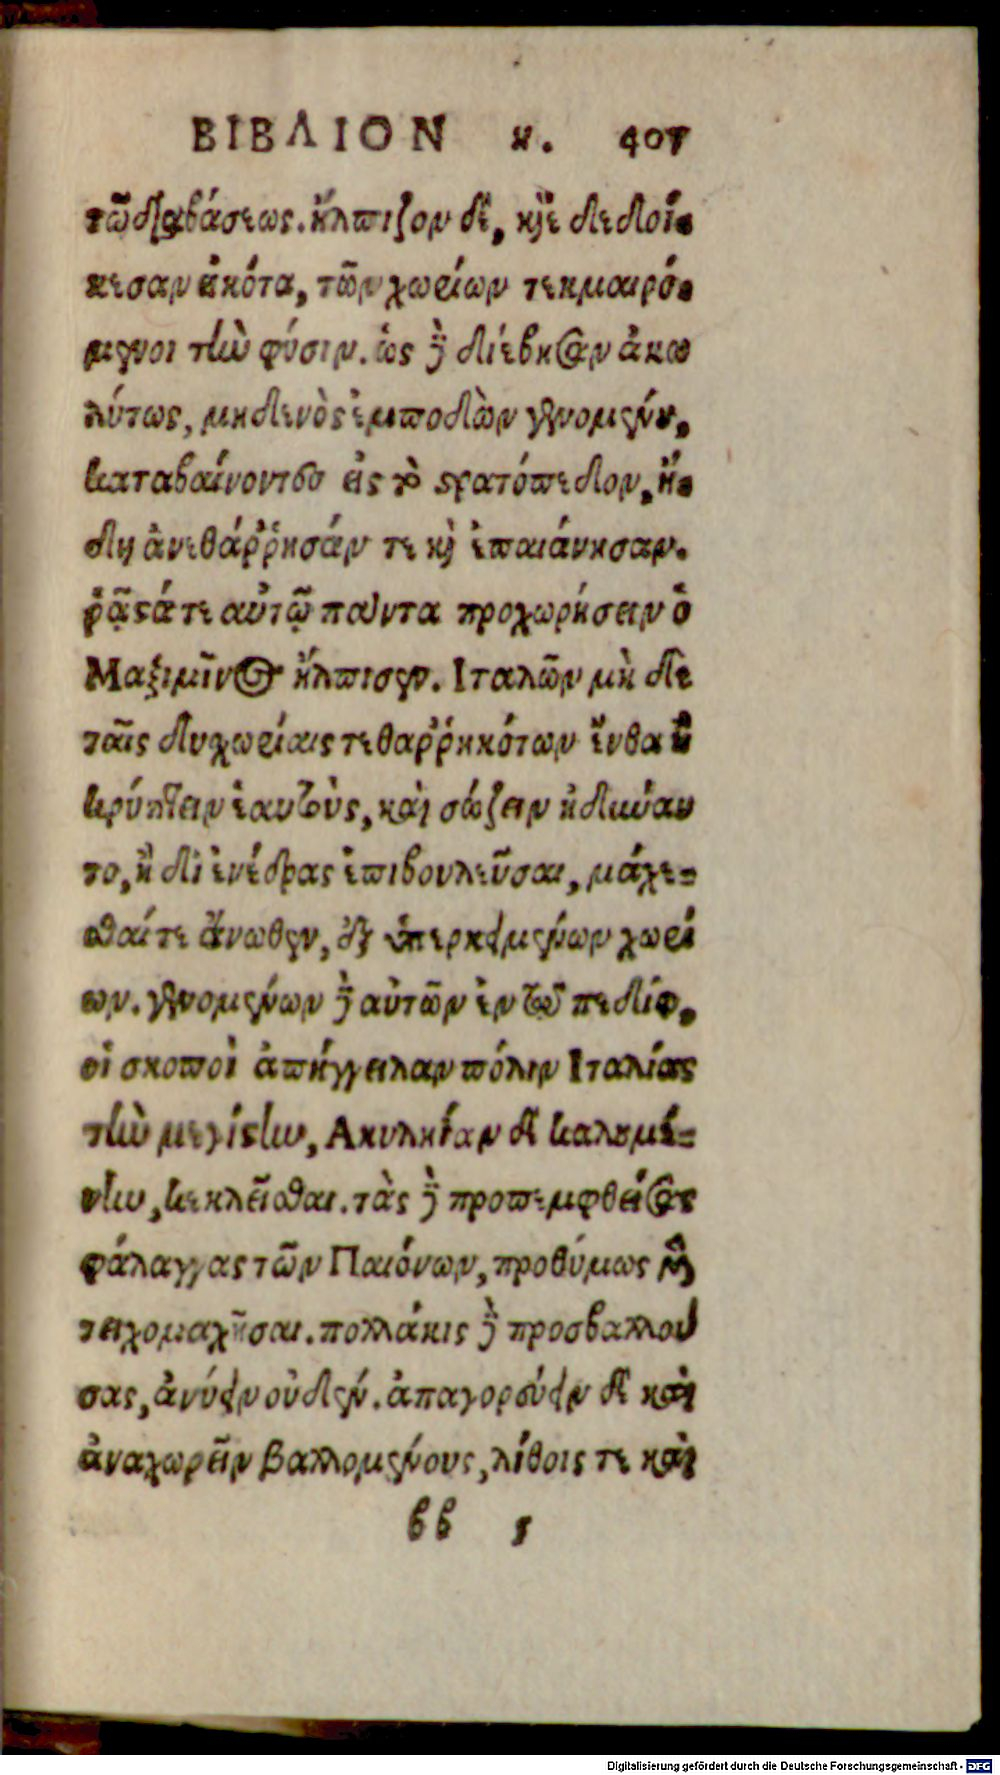 ΒΙΒΛΙΟΝ η. 407
τῶ διαβάσεως. ἤλπιζον δὲ, καὶ ἐδεδοί-
κεσαν εἰκότα, τῶν χωρίων τεκμαιρό-
μενοι τὴν φύσιν. ὡς δὲ διέβησαν ἀκω
λύτως, μηδενὸς ἐμποδὼν γενομένου,
καταβαίνοντες εἰς τὸ στρατόπεδον, ἤ-
δη ἀνεθάῤῥησάν τε καὶ ἐπαιάνησαν.
ῥᾷστά τε αὐτῷ πάντα προχωρήσειν ὁ
Μαξιμῖνος ἤλπισεν. Ἰταλῶν μὴ δὲ
ταῖς δυχωρίαις τεθαῤῥηκότων ἔνθα ἢ
κρύπτειν ἑαυτοὺς, καὶ σώζειν ἠδύναν
το, ἢ δι ἐνέδρας ἐπιβουλεῦσαι, μάχε-
σθαί τε ἄνωθεν, ἐξ ὑπερκειμένων χωρί
ων. γενομένων δὲ αὐτῶν ἐν τῷ πεδίῳ,
οἱ σκοποὶ ἀπήγγειλαν πόλιν Ἰταλίας
τὴν μεγίστην, Ακυληίαν δὲ καλουμέ-
νην, κεκλεῖσθαι. τὰς δὲ προπεμφθείσας
φάλαγγας τῶν Παιόνων, προθύμως μὲν
τειχομαχῆσαι. πολλάκις δὲ προσβαλλού
σας, ἀνύειν οὐδέν. ἀπαγορεύειν δὲ καὶ
ἀναχωρεῖν βαλλομένους, λίθοις τε καὶ
bb 1
Digitalisierung gefördert durch die Deutsche Forschungsgemeinschaft - DFG